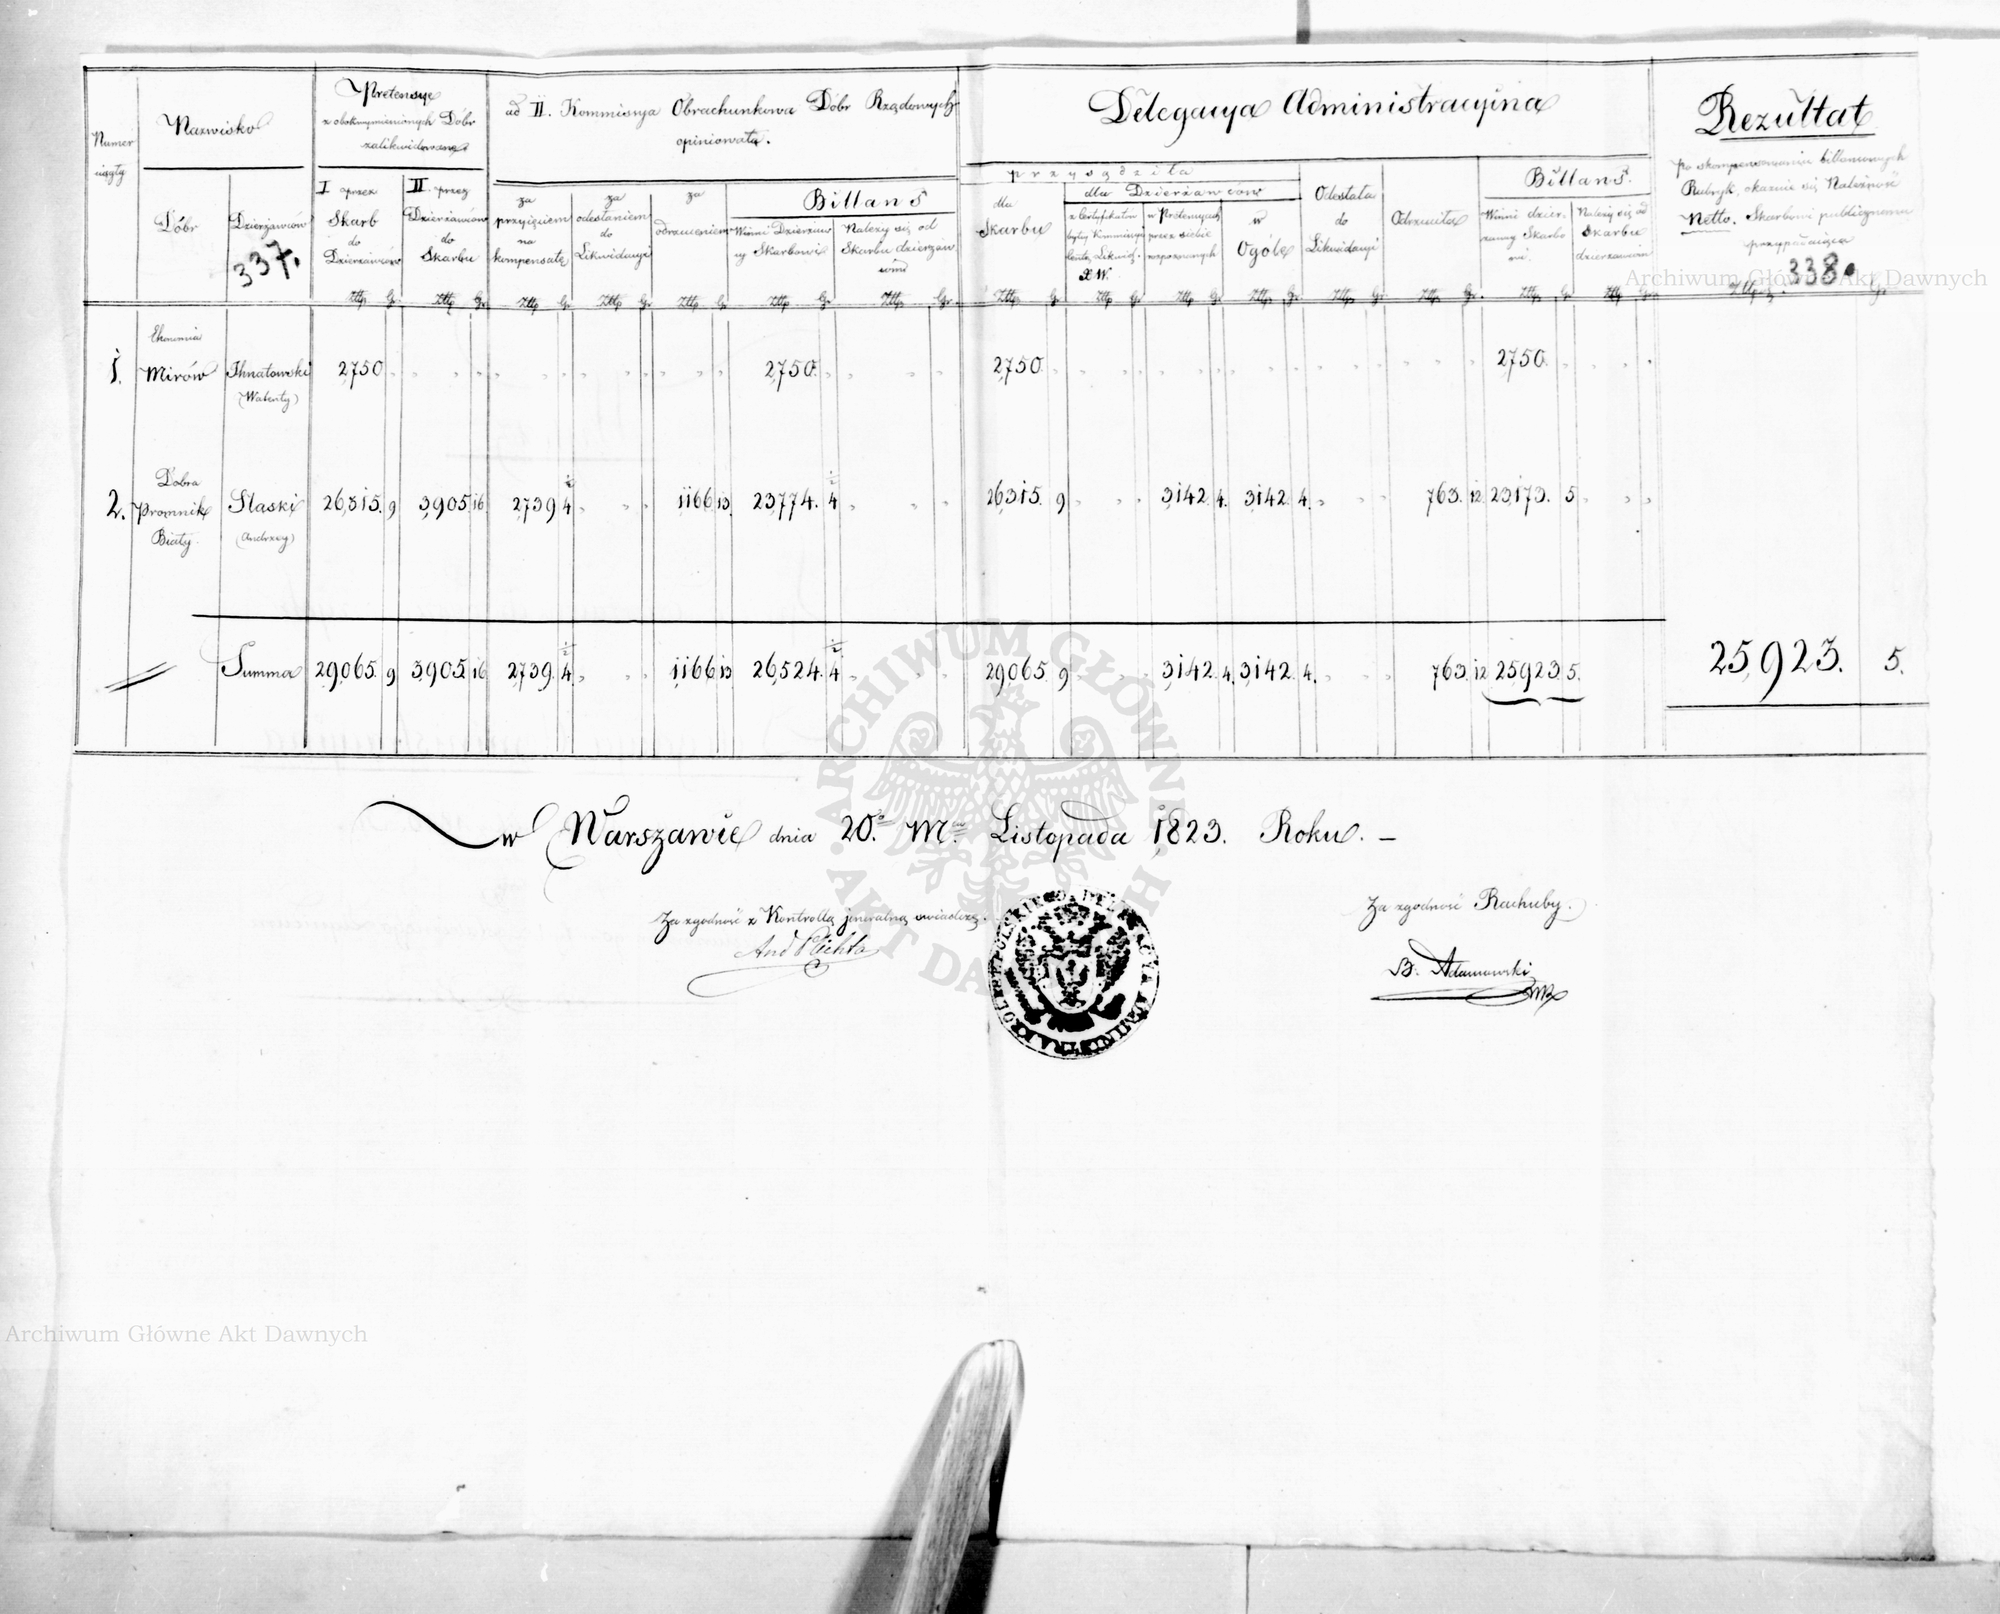 Numer
ciągły
Nazwisko
Dóbr
Dzierżawców
337.
Pretensye
z obokwymienionych Dóbr
zalikwidowane
I przez
Skarb
do
Dzierżawców
II. przez
Dzierżawców
do
Skarbu
ad II. Kommissya Obrachunkowa Dóbr Rządowych
opiniowała.
za
przyięciem
na
kompensatę
za
odesłaniem
do
Likwidacyi
za
odrzuceniem
Billans
Winni Dzierżaw
cy Skarbowi
Należy się od
Skarbu dzierżaw
com
Delegacya Administracyina
przysądziła
dla
Skarbu
dla Dzierżawców
z Certyfikatów
byłey Kommissyi
Centr. Likwid.
X W.
w Pretensyach
przez siebie
rozpoznanych
w
Ogóle
Odesłała
do
Likwidacyi
Odrzuciła
Billans.
Winni dzier-
żawcy Skarbo
wi.
Należy się od
Skarbu
dzierżawcom
Rezultat
po skompensowaniu billansowych
Rubryk, okazuie się Należność
Netto. Skarbowi publicznemu
przypadaiąca
338.
Złp Gr. Złp Gr. Złp Gr. Złp Gr. Złp Gr. Złp Gr. Złp Gr. Złp Gr. Złp Gr. Złp Gr. Złp Gr. Złp Gr. Złp Gr. Złp Gr. Złp Gr. Złp Gr.
1. Ekonomia
Mirów Ihnatowski 2,750 2,750. 2,750. 2,750.
(Walenty)
2. Dobra
Promnik Slaski 26,315. 9 3,905 16 2,739 4 1/2 1,166 13 23,774. 4 1/2 26,315. 9 3,142 4. 3,142 4. 763. 12 23,173. 5
Biały. (Andrzey)
Summa 29,065. 9 3,905 16 2,739. 4 1/2 1,166 13 26,524. 4 1/2 29,065. 9 3,142. 4. 3,142. 4. 763. 12 25,923. 5. 25,923. 5.
w Warszawie dnia 20. Mca Listopada 1,823. Roku. –
Za zgodność z Kontrollą jeneralną świadczę.
And Plichta
Za zgodność Rachuby.
B. Adamowski
Archiwum Główne Akt Dawnych
ARCHIWUM GŁÓWNE · AKT DAWNYCH ·
Archiwum Główne Akt Dawnych